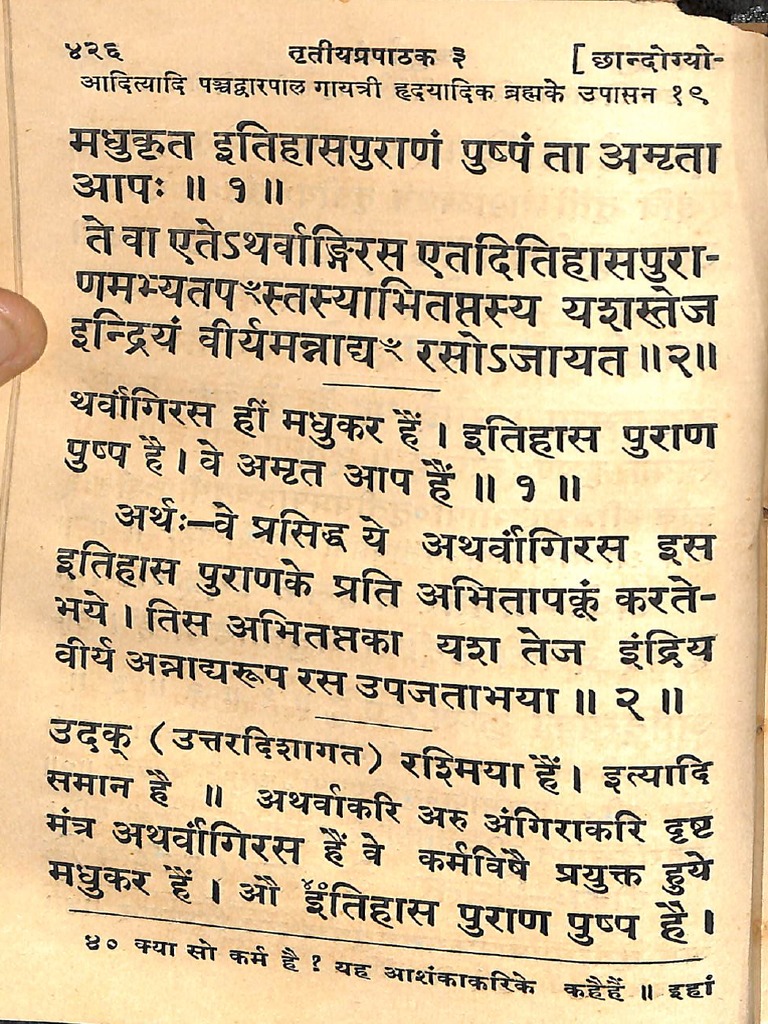 ४२६ तृतीयप्रपाठक ३ [छान्दोग्यो-
आदित्यादि पञ्चद्वारपाल गायत्री हृदयादिक ब्रह्मके उपासन १९
मधुकृत इतिहासपुराणं पुष्पं ता अमृता
आपः ॥ १ ॥
ते वा एतेऽथर्वाङ्गिरस एतदितिहासपुरा-
णमभ्यतपꣳस्तस्याभितप्तस्य यशस्तेज
इन्द्रियं वीर्यमन्नाद्यꣳ रसोऽजायत ॥२॥
थर्वांगिरस हीं मधुकर हैं । इतिहास पुराण
पुष्प है । वे अमृत आप हैं ॥ १ ॥
अर्थः–वे प्रसिद्ध ये अथर्वांगिरस इस
इतिहास पुराणके प्रति अभितापकूं करते-
भये । तिस अभितप्तका यश तेज इंद्रिय
वीर्य अन्नाद्यरूप रस उपजताभया ॥ २ ॥
उदक् (उत्तरदिशागत) रश्मिया हैं । इत्यादि
समान है ॥ अथर्वाकरि अरु अंगिराकरि दृष्ट
मंत्र अथर्वांगिरस हैं वे कर्मविषै प्रयुक्त हुये
मधुकर हैं । औ ४०इंतिहास पुराण पुष्प है ।
४० क्या सो कर्म है ? यह आशंकाकरिके कहैहैं ॥ इहां